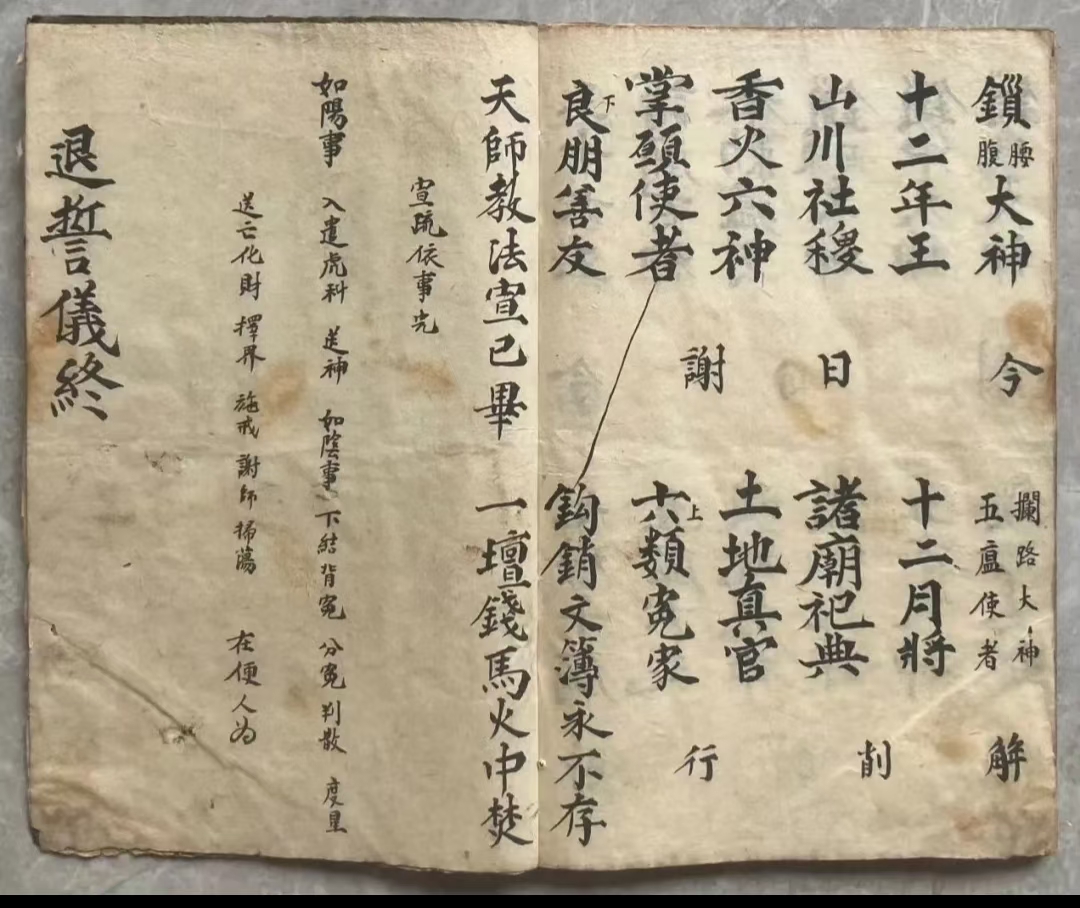 鎖腰腹大神 今 攔路大神五瘟使者 解
十二年王 十二月將
山川社稷 日 諸廟祀典 削
香火六神 土地真官
掌願使者 謝 上六類冤家 行
下良朋善友 鈎銷文簿永不存
天師教法宣已畢 一壇錢馬火中焚
宣疏依事完
如陽事 入遣虎科 送神 如陰事 下結背冤 分冤判散 度星
送亡化財 擇界 施戒 謝師掃蕩 在便人為
退誓儀終